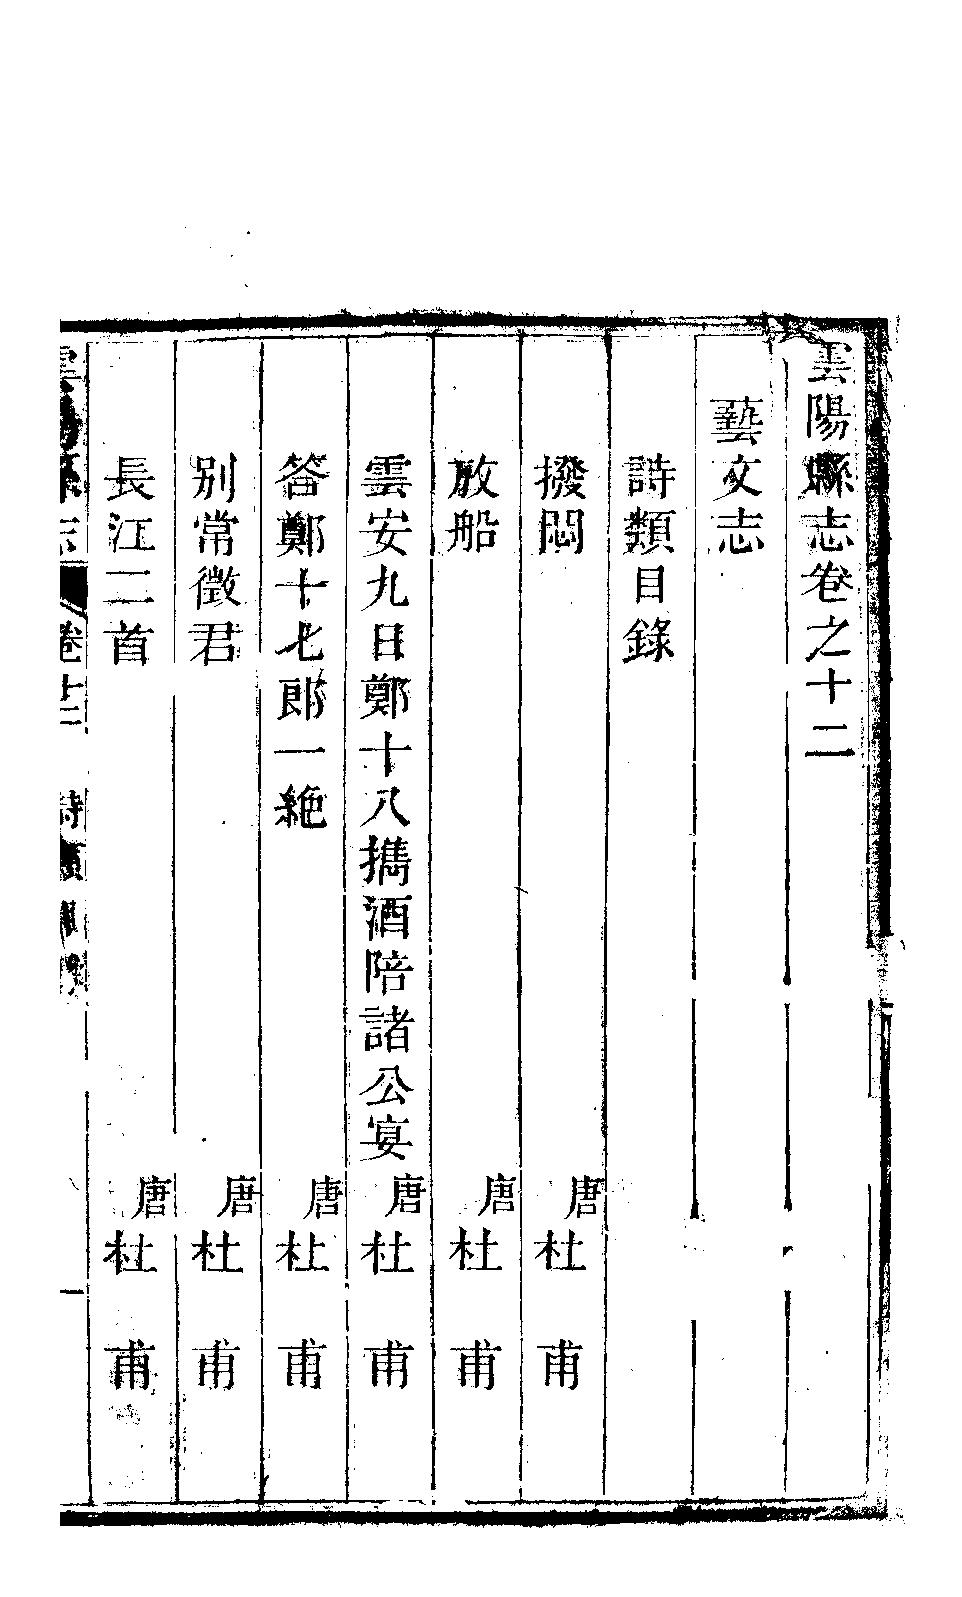 雲陽縣志卷之十二
藝文志
詩類目錄
撥悶 唐杜甫
放船 唐杜甫
雲安九日鄭十八攜酒陪諸公宴 唐杜甫
答鄭十七郎一絶 唐杜甫
别常徵君 唐杜甫
長江二首 唐杜甫
雲陽縣志 卷十二 詩類目錄 一